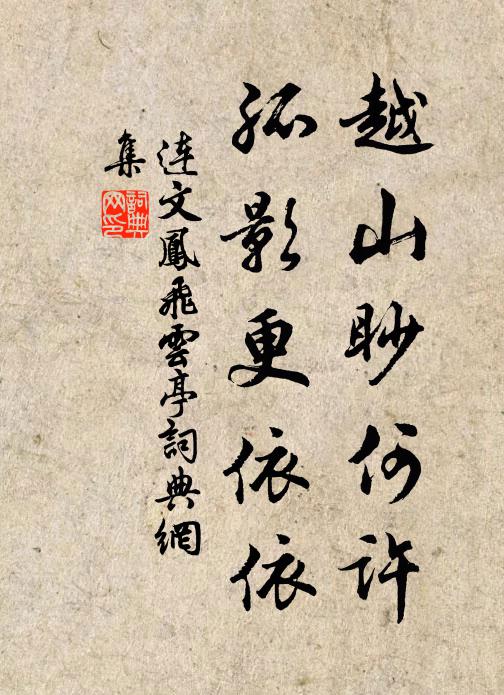 越山眇何許
孤影更依依
連文鳳飛雲亭詞典網
集
詞典
网印